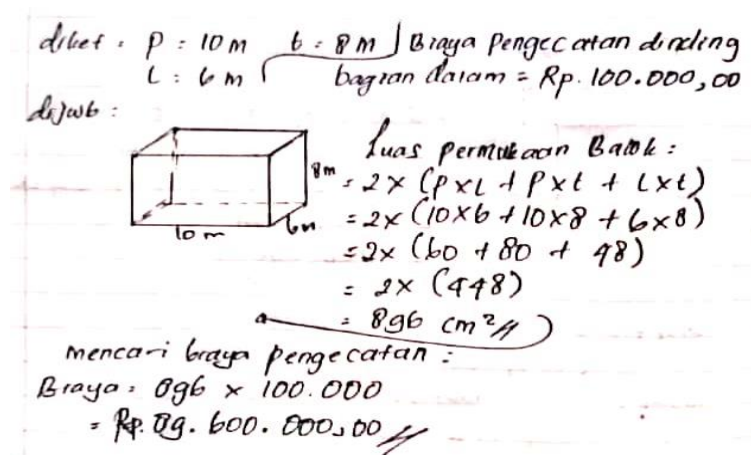 diket : P : 10 m t : 8 m Biaya Pengecatan dinding
L : 6 m bagian dalam = Rp. 100.000,00
dijwb :
Luas permukaan Balok :
8m = 2 x (P x L + P x t + L x t)
10 m 6m = 2x (10x6 + 10x8 + 6x8)
= 2x (60 + 80 + 48)
= 2x (448)
= 896 cm²//
mencari biaya pengecatan :
Biaya = 896 x 100.000
= Rp. 89.600.000,00 //